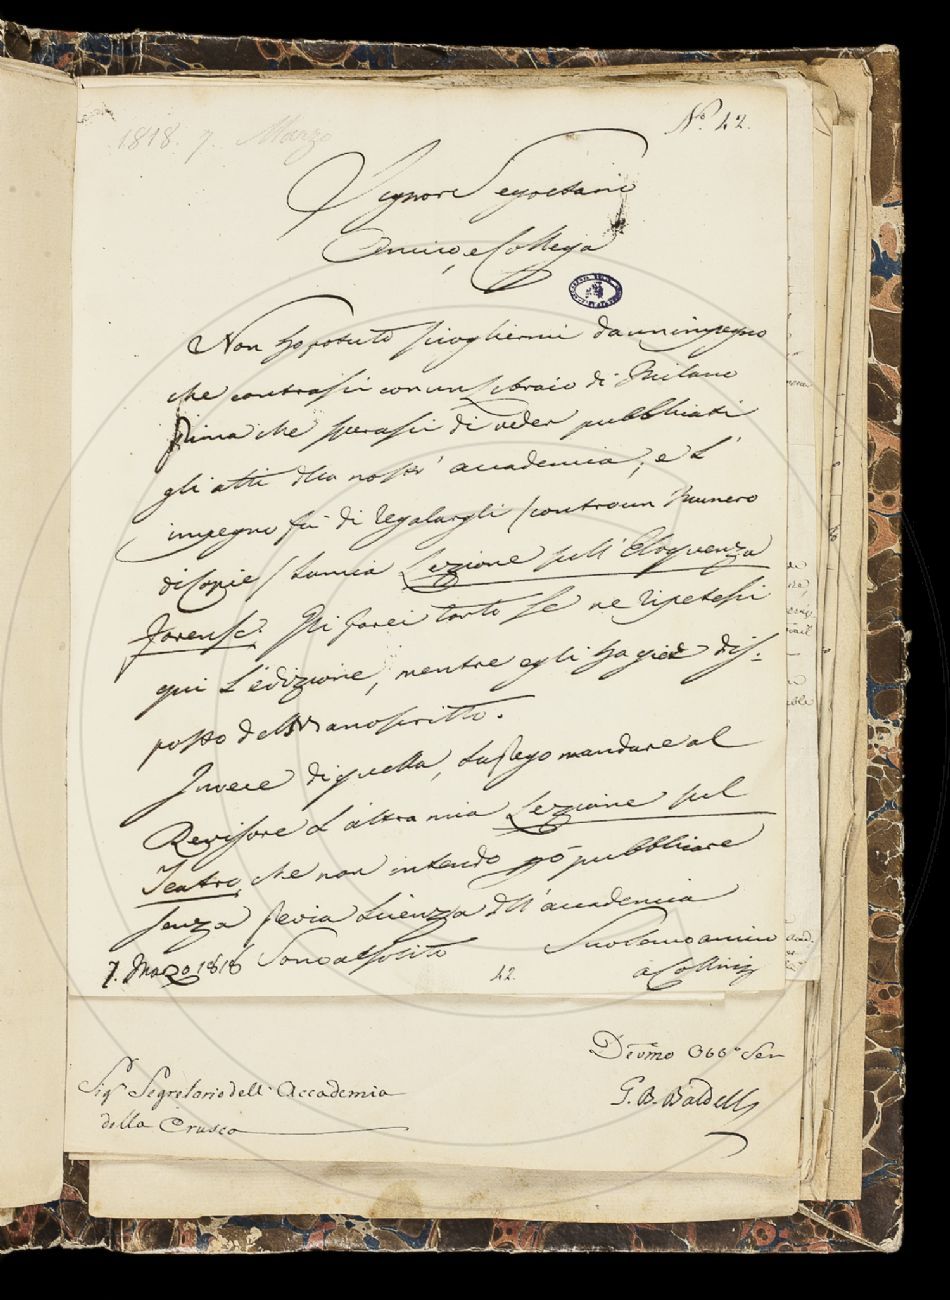 1818. 7. Marzo
N.º 42.
Signore Segretario
Amico, e Collega
Non ho potuto sciogliermi da un impegno
che contrassi con un Libraio di Milano
prima che sperassi di veder pubblicati
gli atti della nostr' accademia, e l'
impegno fu di regalargli (contro un numero
di Copie) la mia Lezione sull' Eloquenza
Forense. Gli farei torto se ne ripetessi
qui l'edizione, mentre egli ha già dis-
posto del Manoscritto.
Invece di quella, la prego mandare al
Revisore l'altra mia Lezione sul
Teatro, che non intendo però pubblicare
senza previa licenza dell' accademia
Sono al solito
Suo Camo amico
7. Marzo 1818
42.
a Collini
Devmo Obbo Ser
G. B. Baldelli
Sigr Segretario dell' Accademia
della Crusca